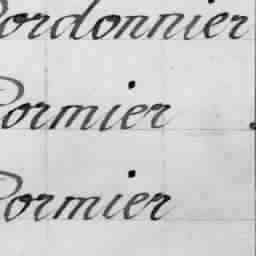 Cordonnier
Cormier
Cormier